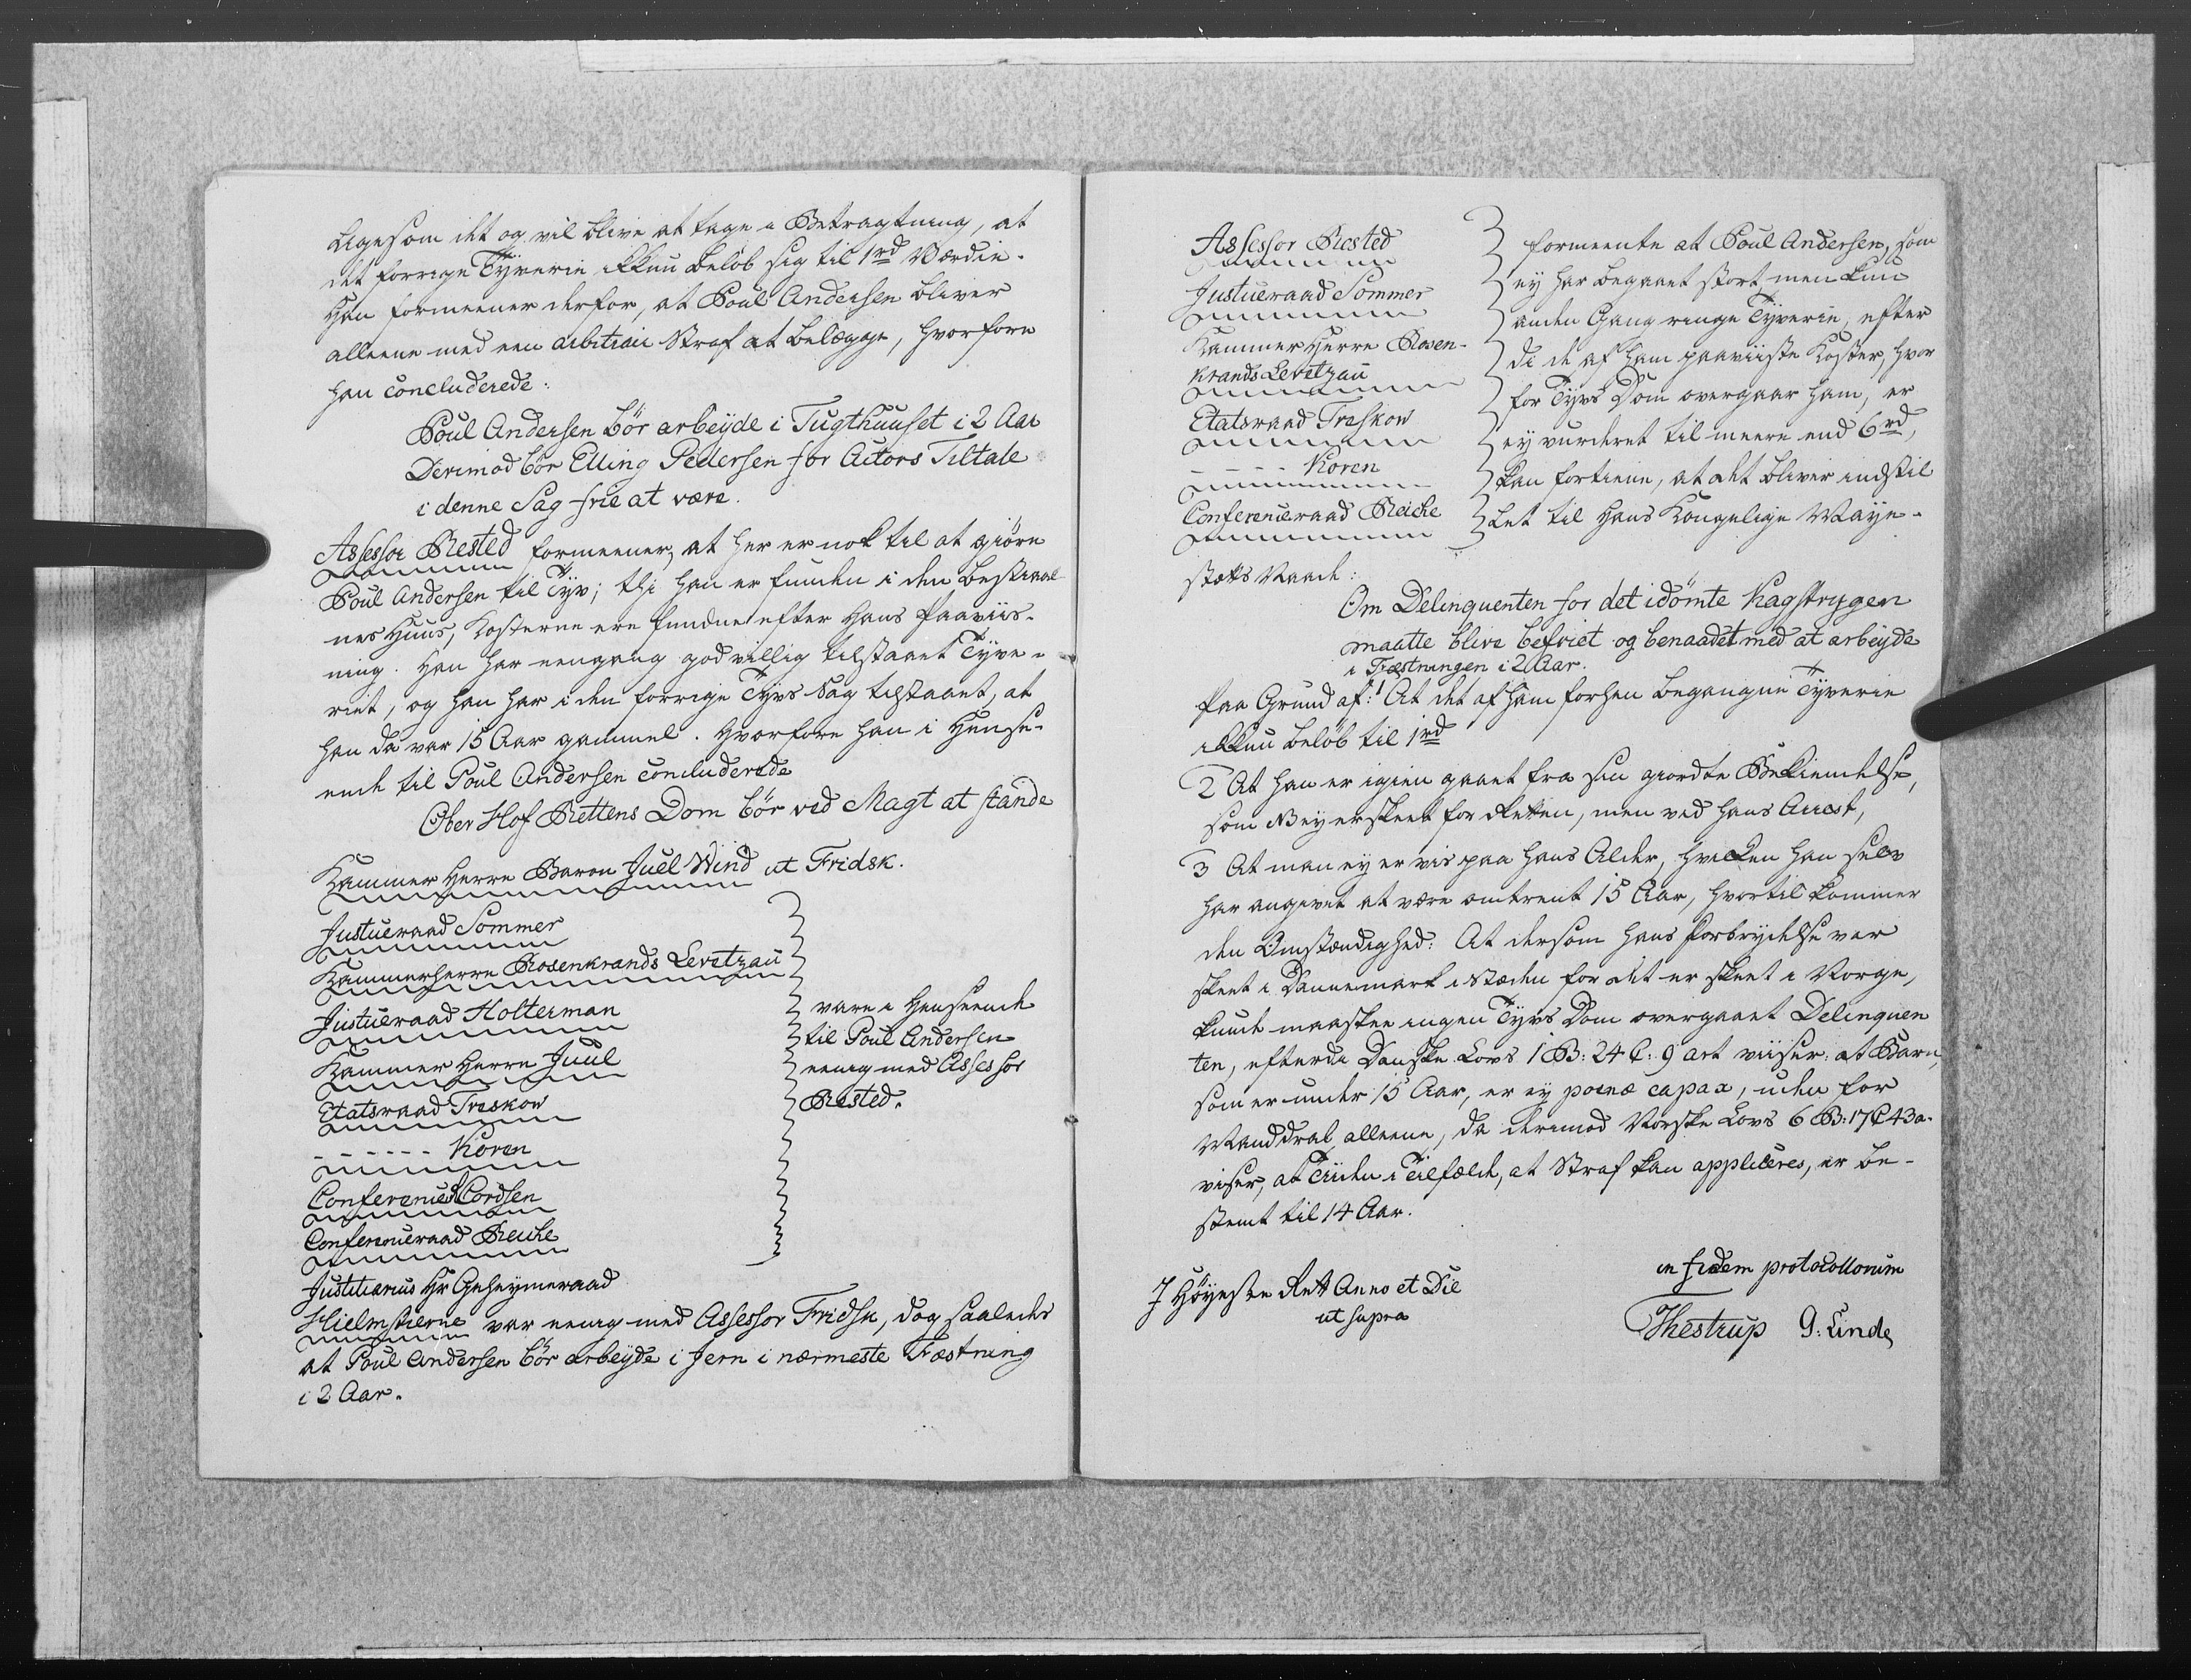 Ligesom det og vil blive at tage i Betragtning, at
det forrige Tyverie ikkun beløb sig til 1rd Værdie.
Han formeener derfor, at Poul Andersen bliver
alleene med een arbitrair Straf at belægge, hvorfore
han concluderede:
Poul Andersen bör arbeyde i Tugthuuset i 2 Aar
Derimod bör Elling Pedersen for Actors Tiltale
i denne Sag frie at være.
Assessor Riested formeener, at her er nok til at giöre
Poul Andersen til Tyv; thi han er funden i den bestiaal-
nes Huus, Kosterne ere fundne efter Hans Paaviis-
ning. Han har eengang godvillig tilstaaet Tyve-
riet, og han har i den forrige Tyvs Sag tilstaaet, at
han da var 15 Aar gammel. Hvorfore han i Hense-
ende til Poul Andersen concluderede
Ober Hof Rettens Dom bör ved Magt at stande
Kammer Herre Baron Juel Wind ut Fridsk.
Justiceraad Sommer
Kammerherre Rosenkrands Levetzau
Justiceraad Holterman
Kammer Herre Juul
Etatsraad Treskow
- - - - - - Koren
Conferencer Cordsen
Conferenceraad Reiche
vare i Henseende
til Poul Andersen
eenig med Assessor
Riested.
Justitiarius Hr Geheymeraad
Hielmstierne var eenig med Assessor Fridsk, dog saaledes
at Poul Andersen bör arbeyde i Jern i nærmeste Fæstning
i 2 Aar.
Assessor Riested
Justiceraad Sommer
Kammer Herre Rosen-
krands Levetzau
Etatsraad Treskow
- - - - - Koren
Conferenceraad Reiche
formeente at Poul Andersen, som
ey har begaaet stort, men kun
anden Gang ringe Tyverie, efter
di de af ham paaviiste Koster, hvor
for Tyvs Dom overgaar ham, er
ey vurderet til meere end 6rd,
kan fortiene, at det bliver indstil
let til Hans Kongelige Maye-
stæts Naade:
Om Delinquenten for det idömte Kagstrygen
maatte blive befriet og benaadet med at arbeyde
i Fæstningen i 2 Aar.
Paa Grund af: 1 At det af ham forhen begangne Tyverie
ikkun beløb til 1rd
2 At han er igien gaaet fra sin giordte Bekiendelse,
som Ney er skeet for Retten, men ved hans Arrest,
3 At man ey er vis paa hans Alder, hvilken han selv
har angivet at være omtrent 15 Aar, hvortil kommer
den Omstændighed: At dersom hans Forbrydelse var
skeet i Dannemark i Stæden for det er skeet i Norge,
kunde maaskee ingen Tyvs Dom overgaaet Delinquen
ten, efterdi Danske Lovs 1 B: 24 C: 9 art viiser: at Barn,
som er under 15 Aar, er ey poenæ capax, uden for
Manddrab alleene, da derimod Norske Lovs 6 B: 17 C 43 a.
viser, at Tiiden i Tilfælde, at Straf kan appliceres, er be-
stemt til 14 Aar.
I Höyeste Rett Anno et Die
ut supra
in fidem protocollorum
Thestrup G: Linde